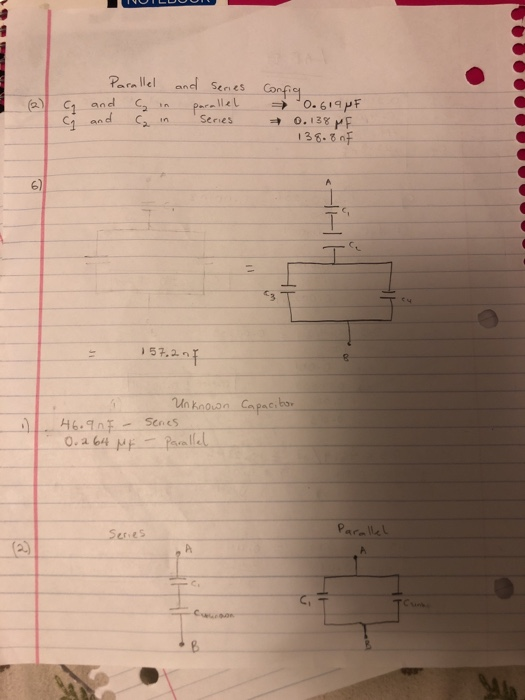 NOTEBOOK
Parallel and Series Config
(2) C1 and C2 in parallel ⇒ 0.619μF
C1 and C2 in Series ⇒ 0.138 μF
138.8nF
6)
A
C1
C2
=
C3
C4
B
= 157.2nF
Unknown Capacitor
1) 46.9nF - Series
0.264 μF - Parallel
(2) Series
Parallel
A
A
C1
C1
Cunknown
B
B